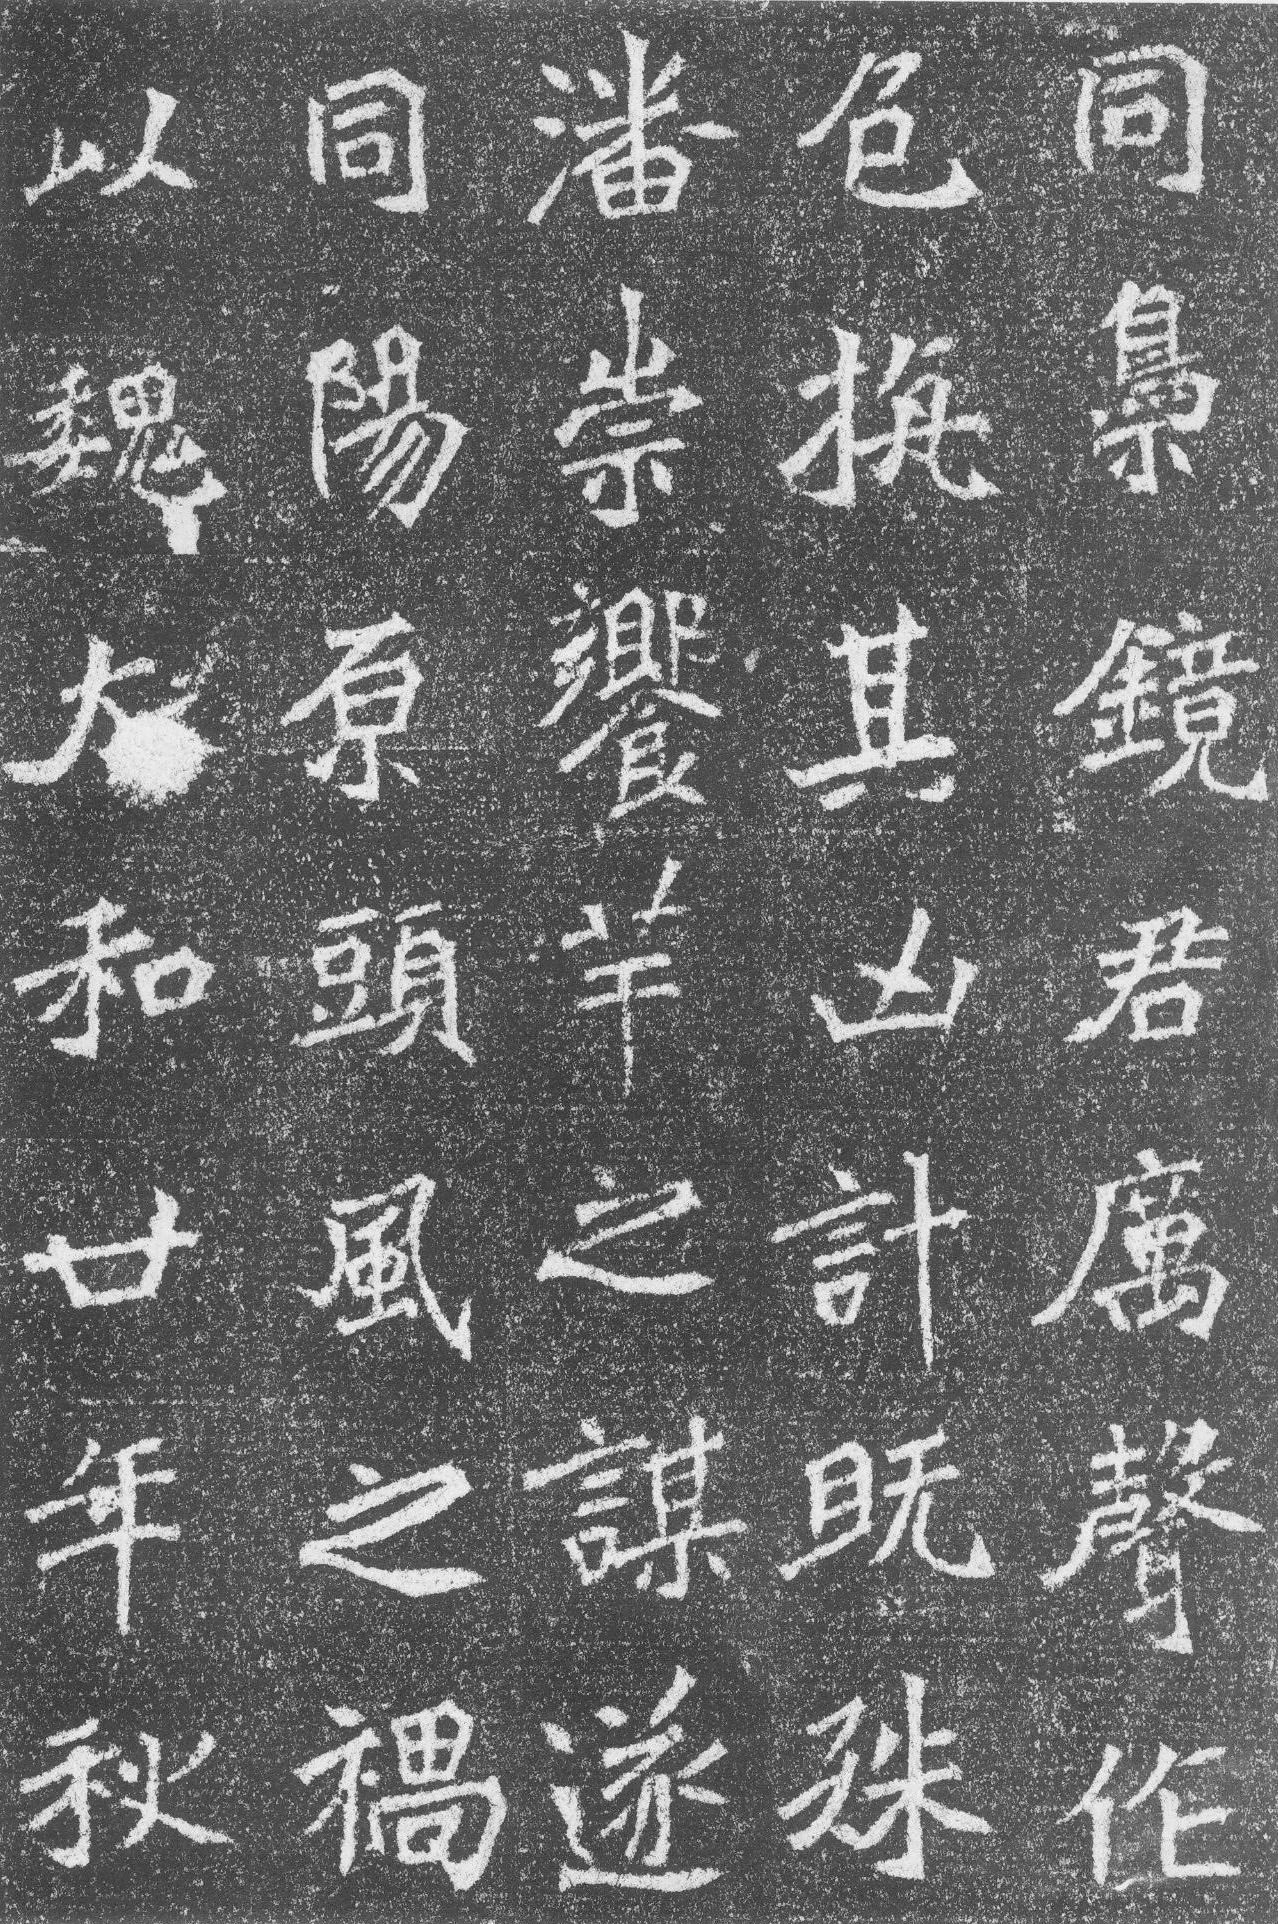 同梟鏡君厲聲作
色抛其凶計既殊
潘崇饗羋之謀遂
同陽原頭風之禍
以魏太和廿年秋